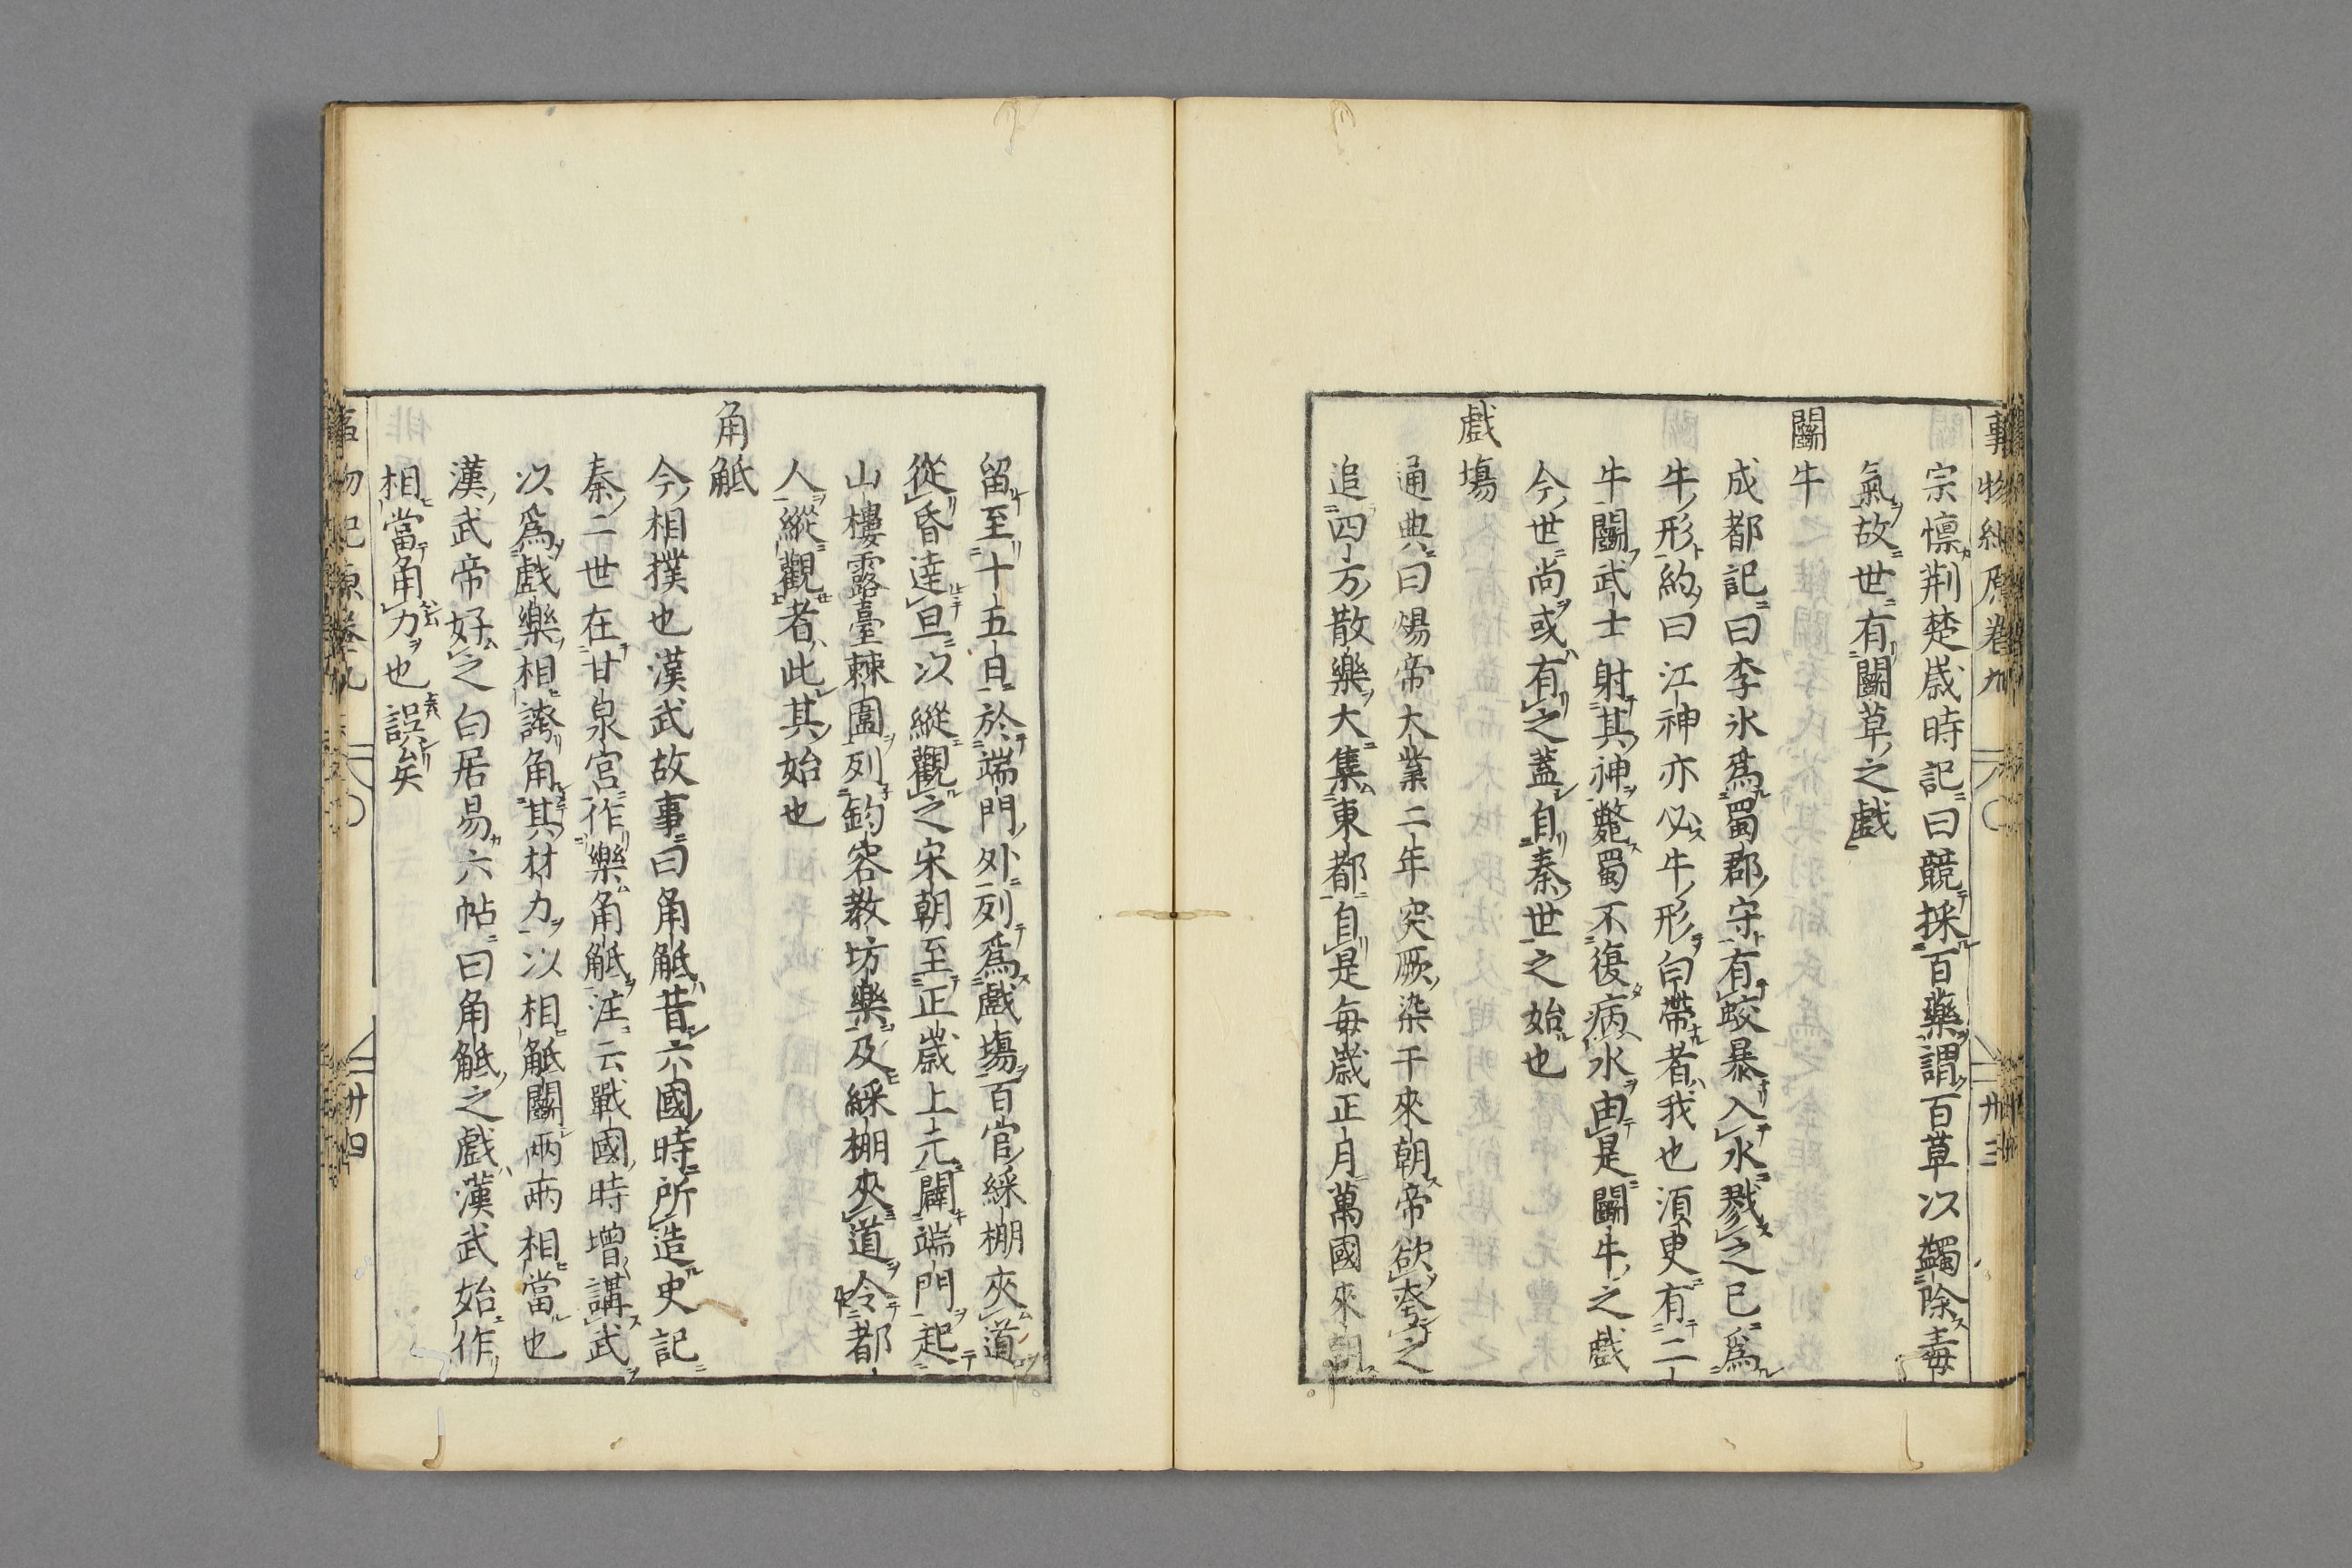 事物紀原卷九 卅三
宗懍荆楚歳時記曰競採百藥謂百草以蠲除毒
氣故世有鬭草之戲
鬭牛
成都記曰李氷爲蜀郡守有蛟暴入水戮之已爲
牛形約曰江神亦必牛形白帶者我也湏更有二
牛鬭武士射其神斃蜀不復病水由是鬭牛之戲
今世尚或有之蓋自秦世之始也
戲塲
通典曰煬帝大業二年突厥染干來朝帝欲夸之
追四方散樂大集東都自是每歳正月萬國來朝
留至十五日於端門外列爲戲塲百官綵棚夾道
從昏達旦以縱觀之宋朝至正歳上元闢端門起
山樓露臺棘圍列鈞容教坊樂及綵棚夾道令都
人縱觀者此其始也
角觝
今相撲也漢武故事曰角觝昔六國時所造史記
秦二世在甘泉宮作樂角觝注云戰國時增講武
以爲戲樂相誇角其材力以相觝鬭兩兩相當也
漢武帝好之白居易六帖曰角觝之戲漢武始作
相當角力也誤矣
事物紀原卷九 卅四